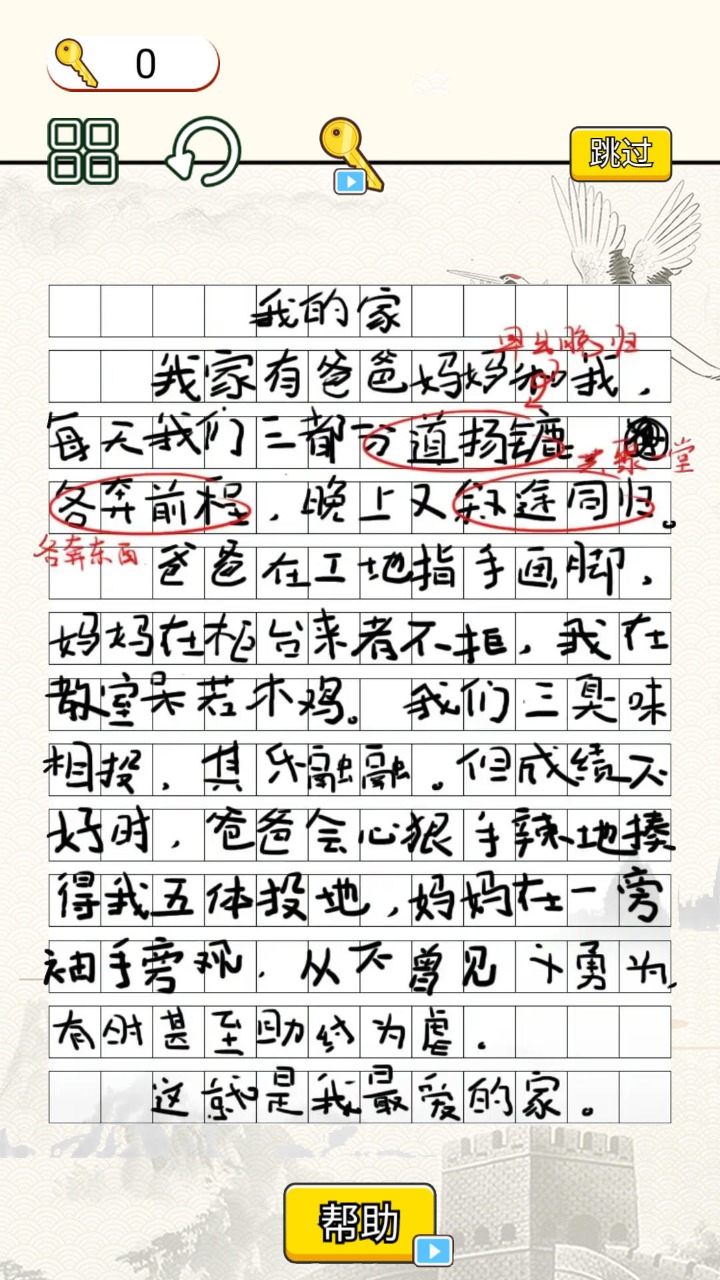 0
跳过
我的家
早出晚归
我家有爸爸妈妈和我，
每天我们三都分道扬镳
共聚一堂
各奔前程，晚上又殊途同归。
各奔东西
爸爸在工地指手画脚，
妈妈在柜台来者不拒，我在
教室呆若木鸡。我们三臭味
相投，其乐融融。但成绩不
好时，爸爸会心狠手辣地揍
得我五体投地，妈妈在一旁
袖手旁观．从不曾见义勇为，
有时甚至助纣为虐．
这就是我最爱的家。
帮助